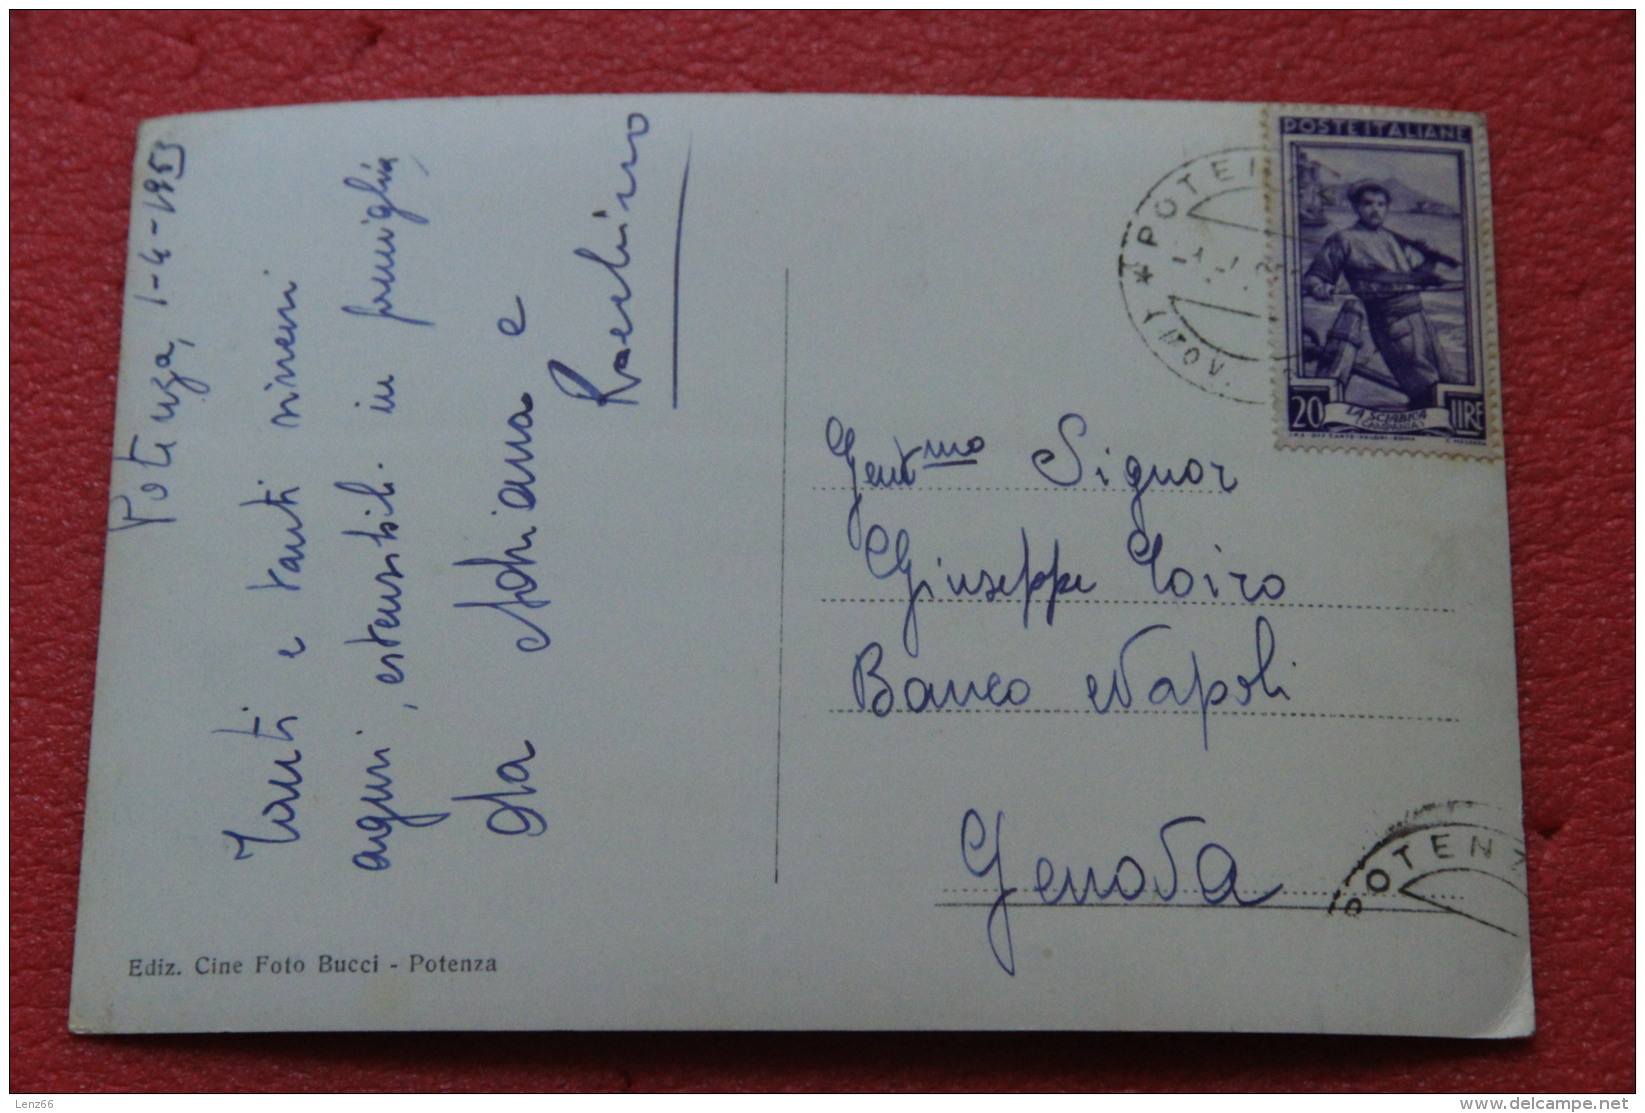 Potenza, 1-4-1953
Tanti e tanti sinceri
auguri, estensibili in famiglia,
da Adriana e
Ediz. Cine Foto Bucci - Potenza
POSTE ITALIANE
20 LIRE
LA SCIABICA
(CAMPANIA)
Gent.mo Signor
Giuseppe Loiro
Banco Napoli
Genova
POTENZ
Lenz66
delcampe.net